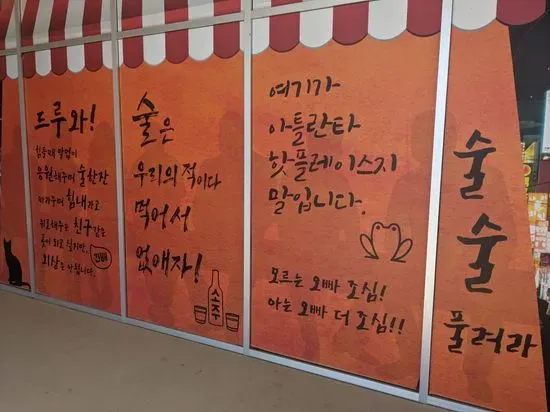 드루와!
힘들때 말없이
응원해주며 술한잔
따라주며 힘내라고
위로해주는 친구같은
곳이 되고 싶지만..
외상은 안됩니다.
건배
술은
우리의 적이다
먹어서
없애자!
소주
여기가
아틀란타
핫플레이스지
말입니다.
모르는 오빠 조심!
아는 오빠 더 조심!!
술
술
풀려라